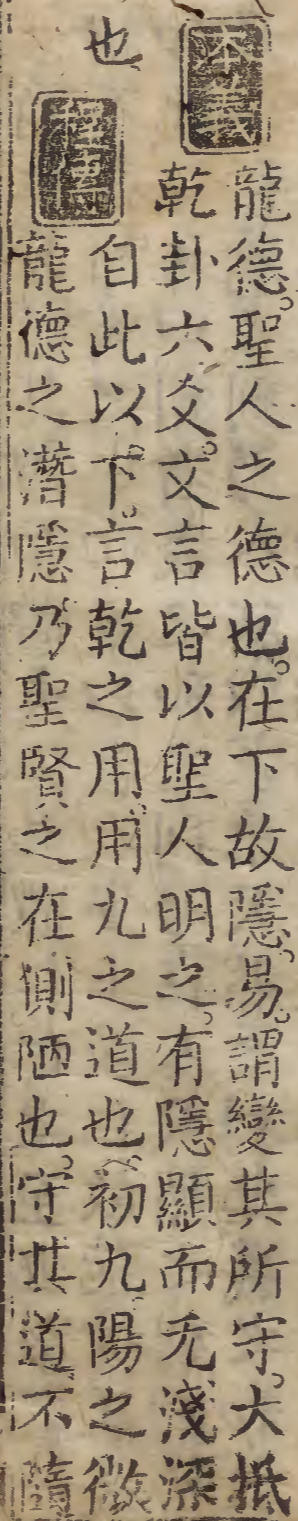 龍德。聖人之德也。在下故隱。易。謂變其所守。大抵
乾卦六爻。文言皆以聖人明之。有隱顯而无淺深
也
本義
程傳
自此以下。言乾之用。用九之道也。初九陽之微
龍德之潛隱乃聖賢之在側陋也。守其道不隨